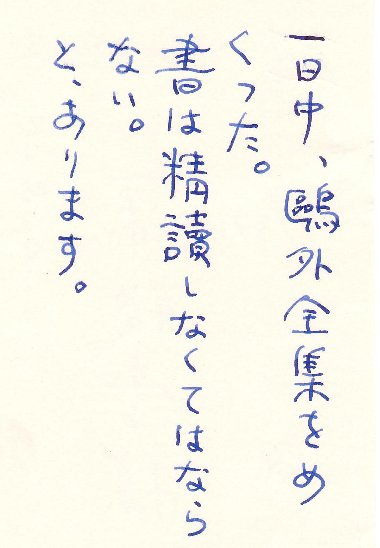 一日中、鷗外全集をめ
くった。
書は精讀しなくてはなら
ない。
と、あります。